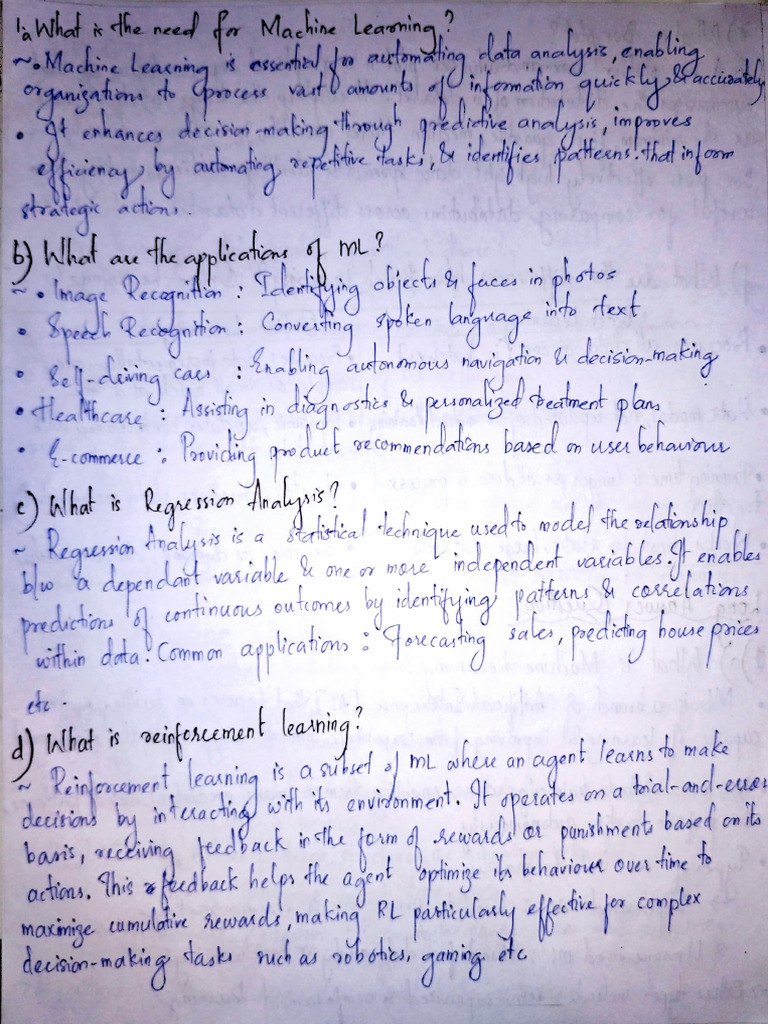 1.a What is the need for Machine Learning?
~ • Machine Learning is essential for automating data analysis, enabling
organizations to process vast amounts of information quickly & accurately
• It enhances decision-making through predictive analysis, improves
efficiency by automating repetitive tasks, & identifies patterns that inform
strategic actions.
b) What are the applications of ML?
~ • Image Recognition : Identifying objects & faces in photos
• Speech Recognition : Converting spoken language into text
• Self-driving cars : Enabling autonomous navigation & decision-making
• Healthcare : Assisting in diagnostics & personalized treatment plans
• E-commerce : Providing product recommendations based on user behaviour
c) What is Regression Analysis?
~ Regression Analysis is a statistical technique used to model the relationship
b/w a dependant variable & one or more independent variables. It enables
predictions of continuous outcomes by identifying patterns & correlations
within data. Common applications : Forecasting sales, predicting house prices
etc.
d) What is reinforcement learning?
~ Reinforcement learning is a subset of ML where an agent learns to make
decisions by interacting with its environment. It operates on a trial-and-error
basis, receiving feedback in the form of rewards or punishments based on its
actions. This feedback helps the agent optimize its behaviour over time to
maximize cumulative rewards, making RL particularly effective for complex
decision-making tasks such as robotics, gaming etc